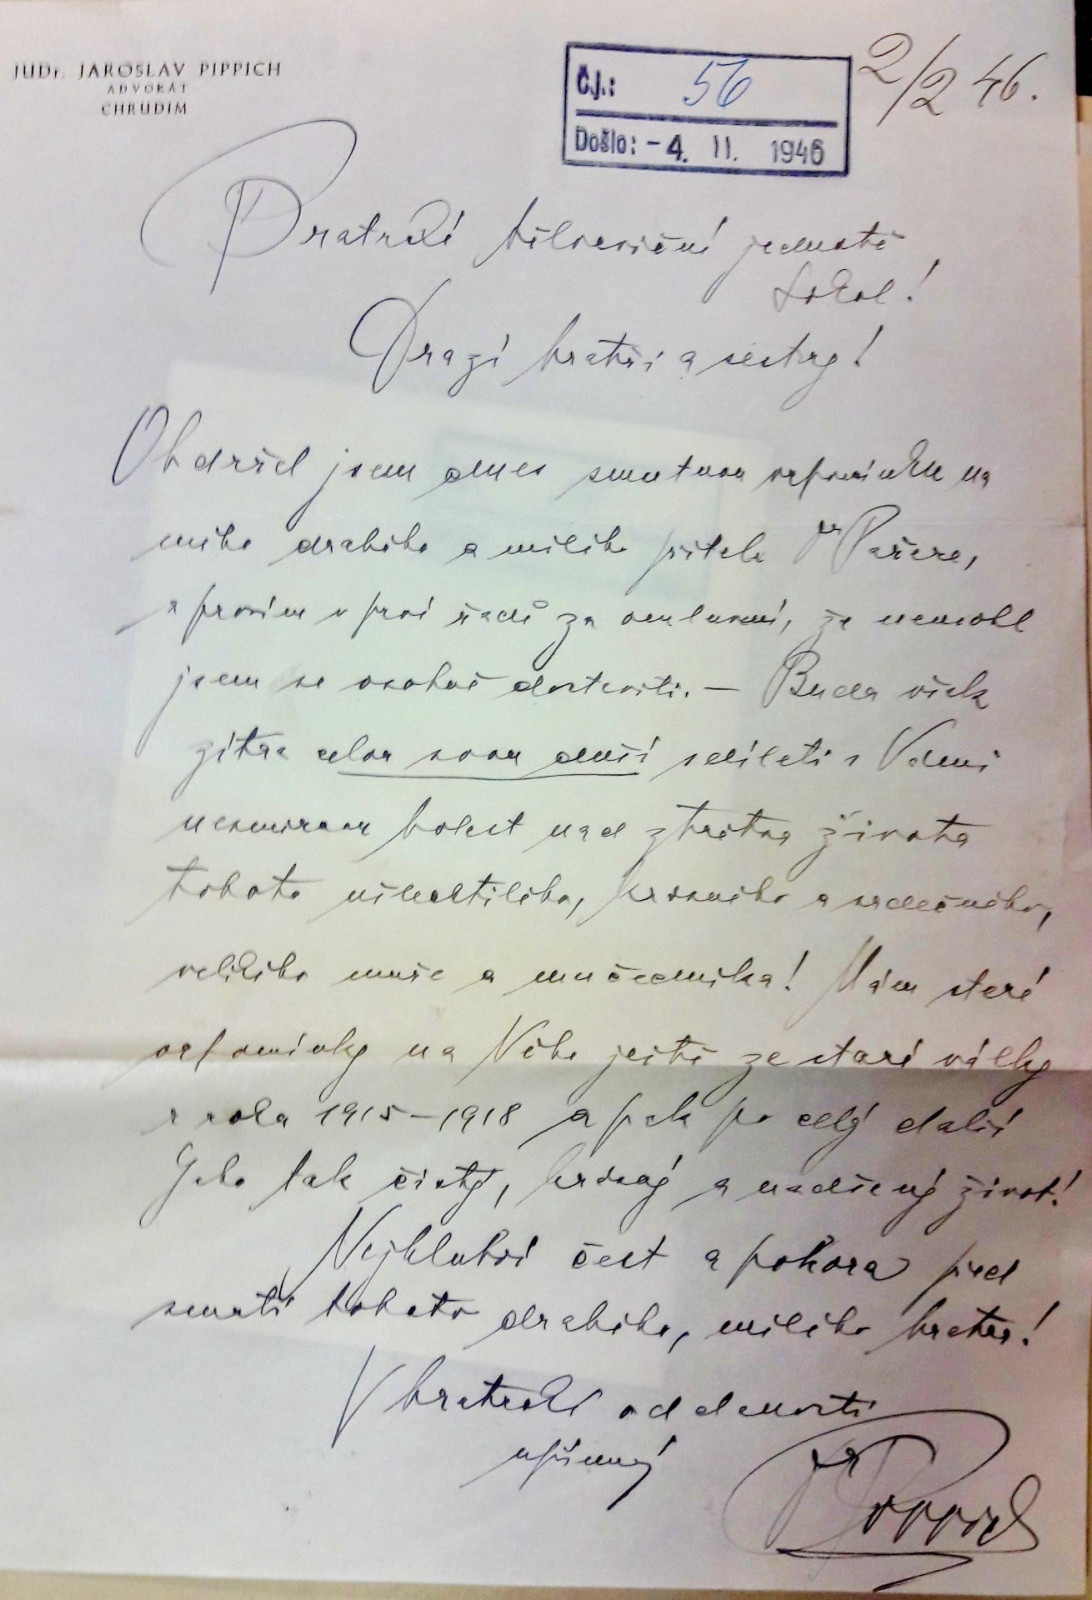 JUDr. JAROSLAV PIPPICH
ADVOKÁT
CHRUDIM
Č.j.: 56
Došlo: -4. II. 1946
2/2 46.
Bratrské tělocvičné jednotě
Sokol!
Drazí bratři a sestry!
Obdržel jsem dnes smutnou vzpomínku na
mého drahého a milého přítele Dr Pařeze,
a prosím v prvé řadě za omluvení, že nemohl
jsem se osobně dostaviti. – Budu však
zítra celou svou duší sdíleti s Vámi
nesmírnou bolest nad ztrátou života
tohoto ušlechtilého, krásného a srdečného,
velikého muže a mučedníka! Mám staré
vzpomínky na Něho ještě ze staré války
z roku 1915–1918 a pak po celý další
Jeho tak čistý, krásný a nadšený život!
Nejhlubší čest a pokora před
smrtí tohoto drahého, milého bratra!
V bratrské oddanosti
upřímný
Dr Pippich